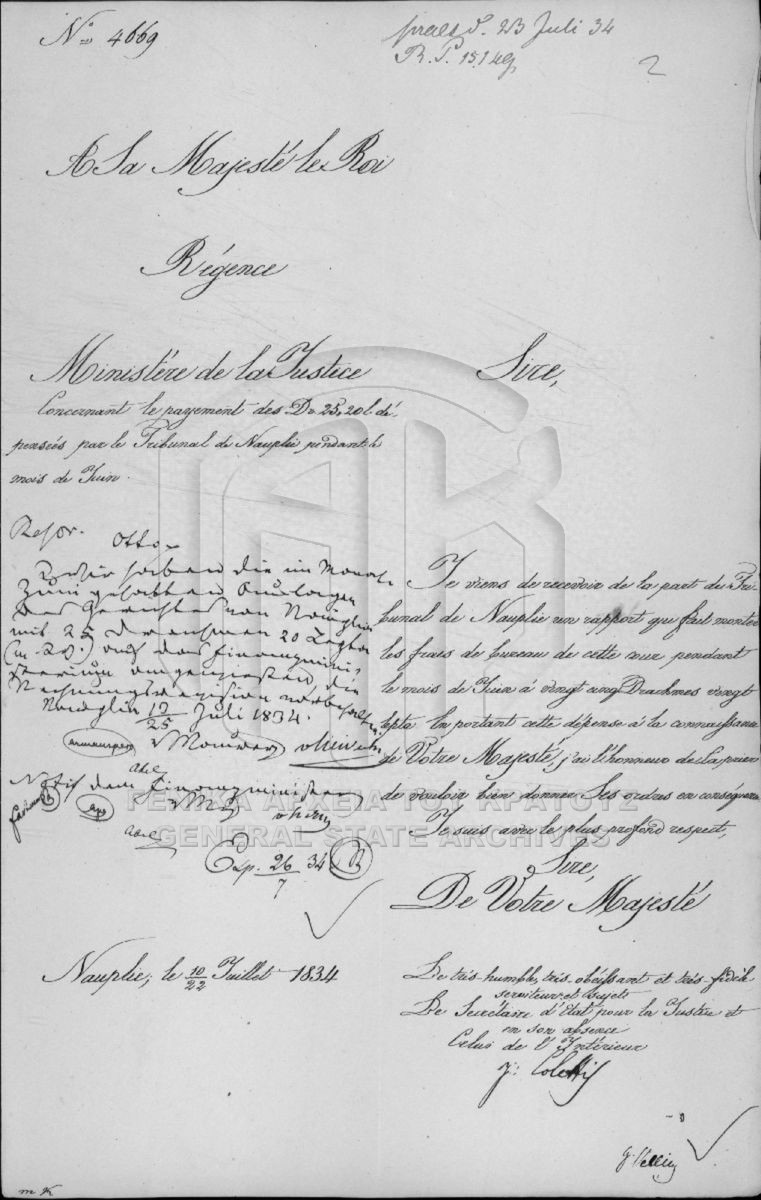 No 4669
praes d. 23 Juli 34
R.P. 15149
2
A Sa Majesté le Roi
Régence
Ministère de la Justice
Concernant le payement des Dr. 25, 20 l. dé-
pensées par le Tribunal de Nauplie pendant le
mois de Juin.
Sire,
Resp.
Otto
Wir haben die im Monate
Juni gehabten Auslagen
des Gerichtes von Nauplia
mit 25 Drachmen 20 Lepta
auf das Finanzminis-
terium angewiesen, die
Rechnungsrevision vorbehalten.
Nauplia 13/25 Juli 1834.
Armansperg Maurer v Heideck
Abel
Notif dem Finanzminister
Abel
Exp. 26/7 34 R
Je viens de recevoir de la part du Tri-
bunal de Nauplie un rapport qui fait monter
les frais de bureau de cette cour pendant
le mois de Juin à vingt cinq Drachmes vingt
lepta. En portant cette dépense à la connaissance
de Votre Majesté, j'ai l'honneur de La prier
de vouloir bien donner Ses ordres en conséquence
Je suis avec le plus profond respect,
Sire,
De Votre Majesté
Nauplie, le 10/22 Juillet 1834
Le très-humble, très-obéissant et très-fidèle
serviteur et sujets
Le Secrétaire d'état pour la Justice et
en son absence
Celui de l'Intérieur
J: Colettis
ΓΕΝΙΚΑ ΑΡΧΕΙΑ ΤΟΥ ΚΡΑΤΟΥΣ
GENERAL STATE ARCHIVES